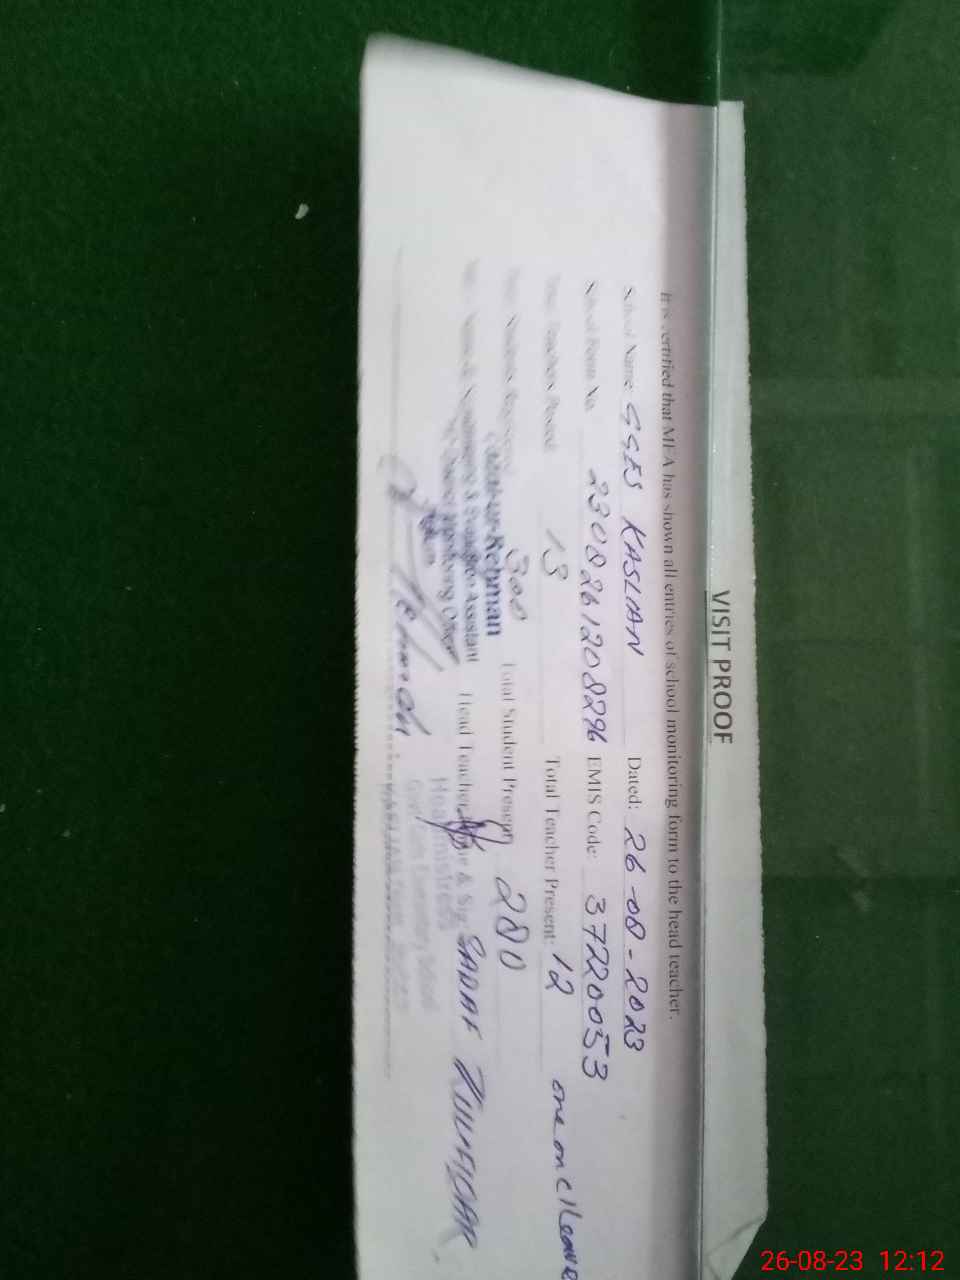 VISIT PROOF
It is certified that MEA has shown all entries of school monitoring form to the head teacher.
School Name: GGES KASLIAN Dated: 26-08-2023
School Form No. 2308261208296 EMIS Code: 37220053
Total Teachers Posted 13 Total Teacher Present: 12 one on c/Leave
300 Total Student Present 280
-ur-Rehman
Monitoring & Evaluation Assistant
Head Teacher Name & Sig SADAF ZULIFIQAR
Monitoring Officer
Headmistress
Rehman
26-08-23 12:12